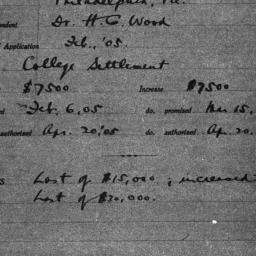 Philadelphia, Pa.
Dr. H. C. Wood
Application Feb., '05.
College Settlement
$7500 Increase $7500
Feb. 6, 05 do. promised Mar 15,
authorized Apr. 20, '05 do. authorized Apr. 20,
Cost of $15,000; increased
Cost of $20,000.